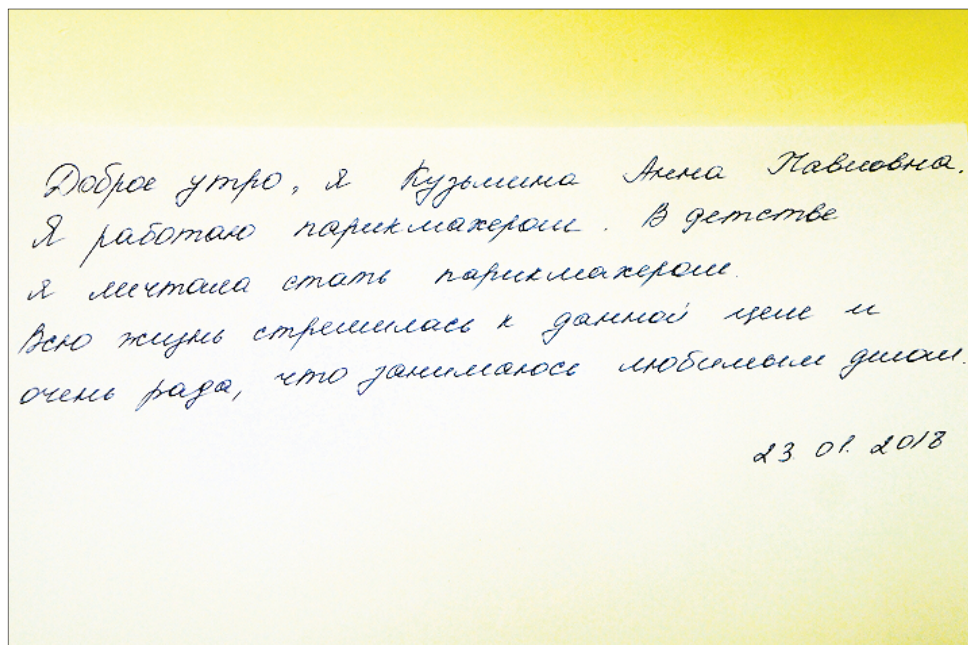 Доброе утро, я Кузьмина Анна Павловна.
Я работаю парикмахером. В детстве
я мечтала стать парикмахером.
Всю жизнь стремилась к данной цели и
очень рада, что занимаюсь любимым делом.
23.01.2018